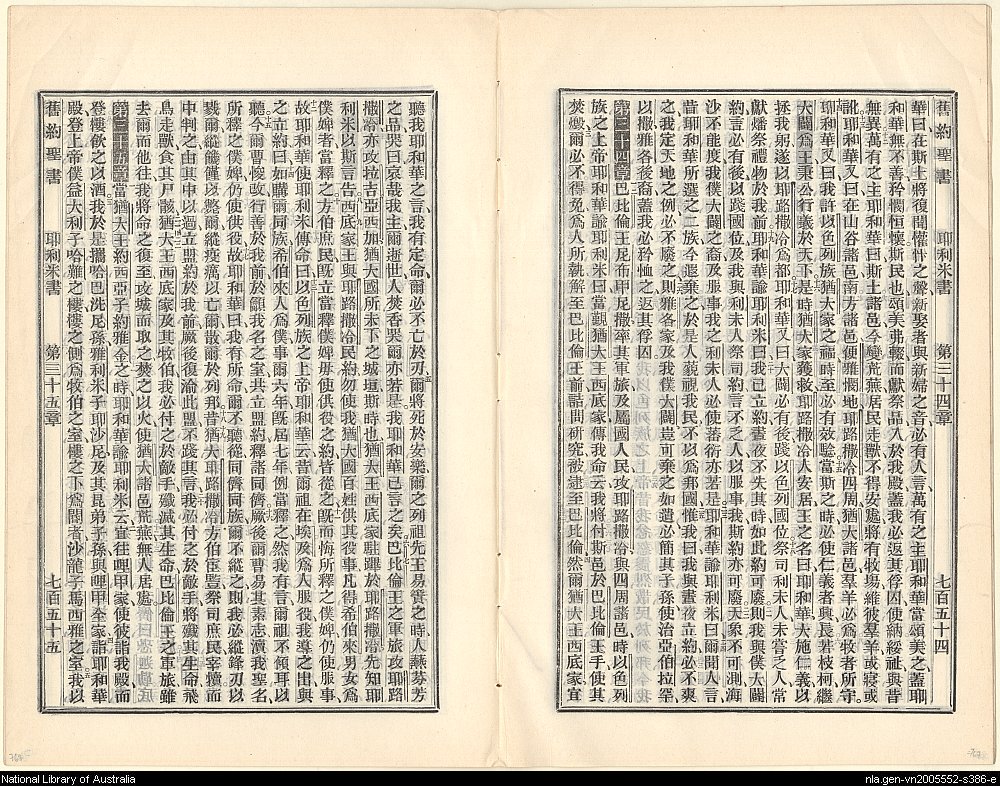 舊約聖書 耶利米書 第三十四章 七百五十四
華曰在斯土將復聞懽忭之聲新娶者與新婦之音必有人言萬有之主耶和華當頌美之蓋耶
和華無不善矜憫恒懷斯民也頌美弗輟而獻祭品入於我殿蓋我必返其俘囚使綿綏祉與昔
無異萬有之主耶和華曰斯土諸邑今變荒蕪居民走獸不得安處將有牧場維彼羣羊或寢或
訛耶和華又曰在山谷諸邑南方諸邑便雅憫地耶路撒冷四周猶大諸邑羣羊必爲牧者所守
耶和華又曰我許以色列族猶大家之福時至必有效驗當斯之時必使仁義者興長若枝柯繼
大闢爲王秉公行義於天下是時猶大家獲救耶路撒冷人安居王之名曰耶和華大施仁義以
拯我躬遂以耶路撒冷爲都耶和華又曰大闢必有後踐以色列國位祭司利未人未嘗乏人常
獻燔祭禮物於我前耶和華諭耶利米曰我已立約晝夜不失其時如此約可廢則我與僕大闢
約言必有後以踐國位及我與利未人祭司約言不乏人以服事我斯約亦可廢天象不可測海
沙不能度我僕大闢之裔及服事我之利未人必使蕃衍亦若是耶和華諭耶利米曰爾聞人言
昔耶和華所選之二族今遐棄之於是人藐視我民不以爲邦國惟我曰我與晝夜立約必不爽
之我定天地之例必不廢之則雅各家及我僕大闢豈可棄之如遺必簡其子孫使治亞伯拉罕
以撒雅各後裔蓋我必矜恤之返其俘囚
第三十四章巴比倫王尼布甲尼撒率其軍旅及屬國人民攻耶路撒冷與四周諸邑時以色列
族之上帝耶和華諭耶利米曰當覲猶大王西底家傳我命云我將付斯邑於巴比倫王手使其
焚燬爾必不得免爲人所執解至巴比倫王前詰問研究被逮至巴比倫然爾猶大王西底家宜
聽我耶和華之言我有定命爾必不亡於刃爾將死於安樂爾之列祖先王易簀之時人燕芬芳
之品哭曰哀哉我主爾逝世人焚香哭爾亦若是我耶和華已言之矣巴比倫王之軍旅攻耶路
撒冷亦攻拉吉亞西加猶大國所未下之城垣斯時也猶大王西底家駐蹕於耶路撒冷先知耶
利米以斯言告西底家王與耶路撒冷民約勿使我猶大國百姓供其役事凡得希伯來男女爲
僕婢者當釋之方伯庶民旣立當釋僕婢毋使供役之約皆從之旣而悔所釋之僕婢仍使服事
故耶和華使耶利米傳命曰以色列族之上帝耶和華云昔爾祖在埃及爲人服役我導之出與
之立約曰如購爾同族希伯來人爲僕事爾六年旣屆七年例當釋之然我有言爾祖不傾耳以
聽今爾曹悛改行善於我前於籲我名之室共立盟約釋諸同儕厥後爾曹易其素志瀆我聖名
所釋之僕婢仍使供役故耶和華曰我有所命爾不聽從同儕同族爾不縱之則我必縱鋒刃以
戮爾縱饑饉以斃爾縱疫癘以亡爾散爾於列邦昔猶大耶路撒冷方伯臣宦祭司庶民宰犢而
中判之由其中以過立盟約於我前厥後復渝此盟不踐其言我必付之於敵手將殲其生命飛
鳥走獸食其尸骸猶大王西底家及其牧伯我必付之於敵手殲滅其生命巴比倫王之軍旅雖
去爾而他往我將命之復至攻城而取之焚之以火使猶大諸邑荒蕪無人居處
第三十五章當猶大王約西亞子約雅金之時耶和華諭耶利米云宜往哩甲家使彼詣我殿而
登樓飲之以酒我於是攜哈巴洗尼孫雅利米子耶沙尼及其昆弟子孫與哩甲全家詣耶和華
殿登上帝僕益大利子哈難之樓樓之側爲牧伯之室樓之下爲閽者沙龍子馬西雅之室我以
舊約聖書 耶利米書 第三十五章 七百五十五
National Library of Australia
nla.gen-vn2005552-s386-e